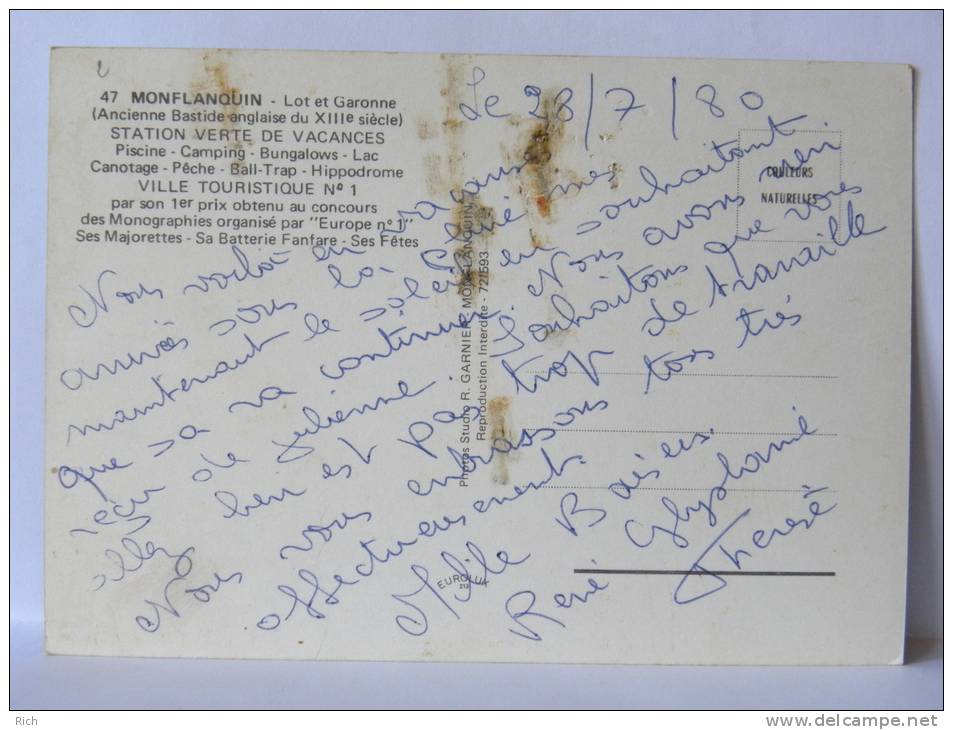 47 MONFLANQUIN - Lot et Garonne
(Ancienne Bastide anglaise du XIIIe siècle)
STATION VERTE DE VACANCES
Piscine - Camping - Bungalows - Lac
Canotage - Pêche - Ball-Trap - Hippodrome
VILLE TOURISTIQUE Nº 1
par son 1er prix obtenu au concours
des Monographies organisé par "Europe nº 1"
Ses Majorettes - Sa Batterie Fanfare - Ses Fêtes
Le 28/7/80
COULEURS
NATURELLES
Nous voilà en vacances
arrivés sous la pluie mes
maintenant le soleil en souhaitant
que sa va continuer. Nous avons rien
reçu de julienne. Souhaitons que vous
allez bien est pas trop de travaille
Nous vous embrassons tous très
affectueusement.
Mille Baisers.
René Therese
Photos Studio R. GARNIER, MONFLANQUIN
Reproduction Interdite - 72/593
EUROLUX
Rich
www.delcampe.net